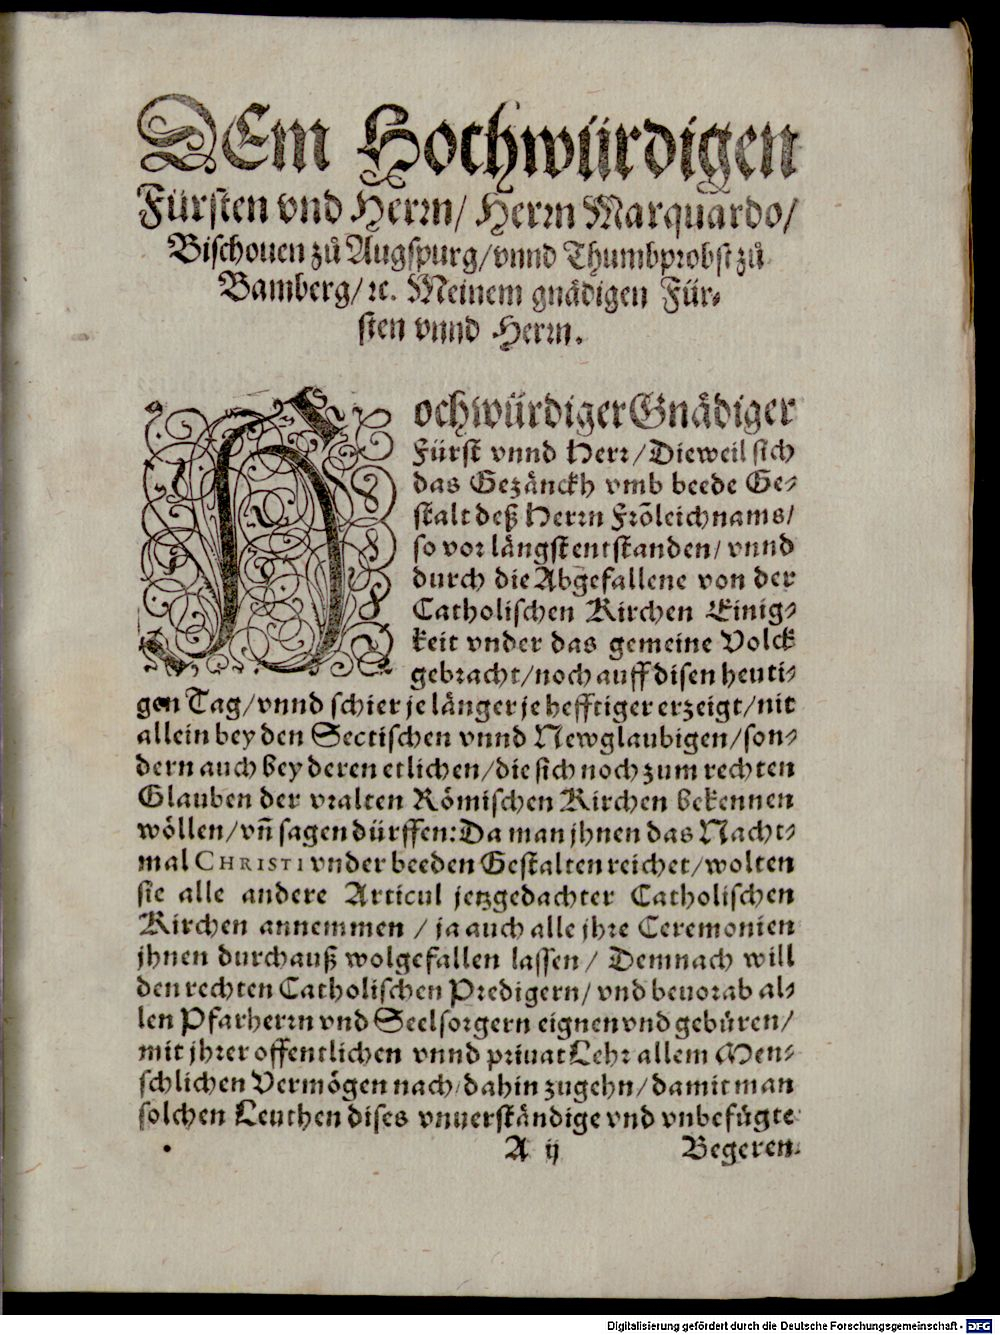 DEm Hochwürdigen
Fürsten vnd Herrn/ Herrn Marquardo/
Bischouen zů Augspurg/ vnnd Thumbprobst zů
Bamberg/ ꝛc. Meinem gnädigen Für-
sten vnnd Herrn.
Hochwürdiger Gnädiger
Fürst vnnd Herr/ Dieweil sich
das Gezänckh vmb beede Ge-
stalt deß Herrn Frõleichnams/
so vor längst entstanden/ vnnd
durch die Abgefallene von der
Catholischen Kirchen Einig-
keit vnder das gemeine Volck
gebracht/ noch auff disen heuti-
gen Tag/ vnnd schier je länger je hefftiger erzeigt/ nit
allein bey den Sectischen vnnd Newglaubigen/ son-
dern auch bey deren etlichen/ die sich noch zum rechten
Glauben der vralten Römischen Kirchen bekennen
wöllen/ vñ sagen dürffen: Da man jhnen das Nacht-
mal CHRISTI vnder beeden Gestalten reichet/ wolten
sie alle andere Articul jetzgedachter Catholischen
Kirchen annemmen / ja auch alle jhre Ceremonien
jhnen durchauß wolgefallen lassen/ Demnach will
den rechten Catholischen Predigern/ vnd beuorab al-
len Pfarherrn vnd Seelsorgern eignen vnd gebüren/
mit jhrer offentlichen vnnd priuat Lehr allem Men-
schlichen Vermögen nach/ dahin zugehn/ damit man
solchen Leuthen dises vnuerständige vnd vnbefügte
A ij Begeren
Digitalisierung gefördert durch die Deutsche Forschungsgemeinschaft - DFG